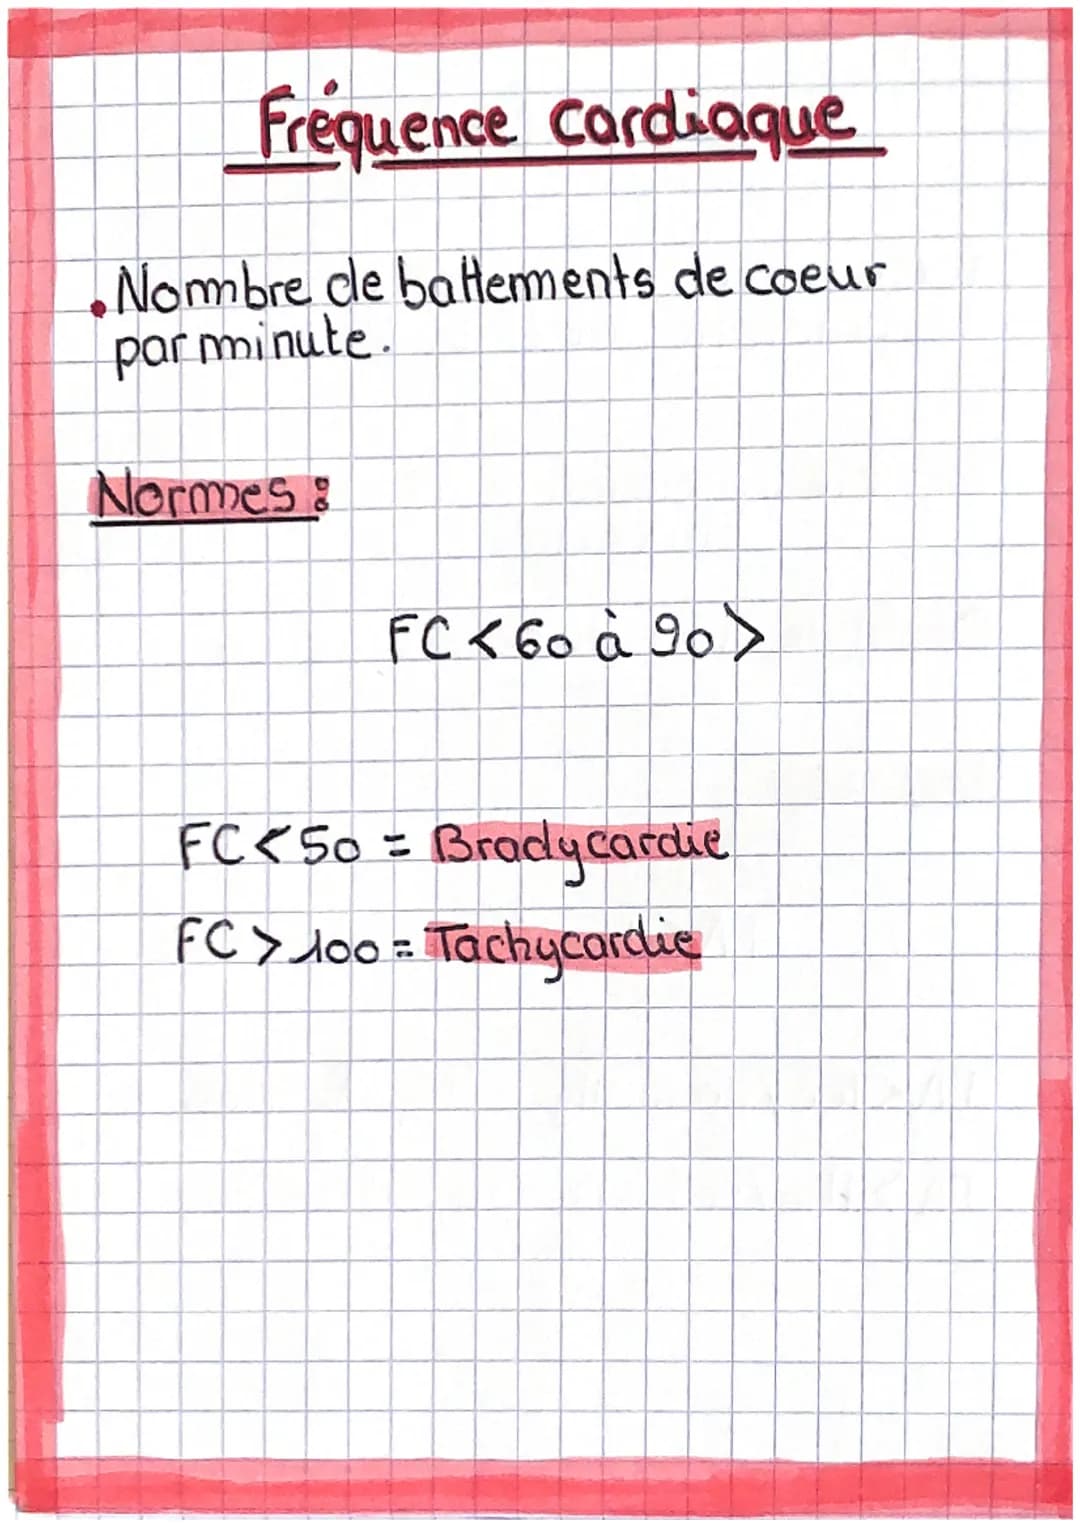 Fréquence cardiaque
• Nombre de battements de coeur
par minute.
Normes :
FC < 60 à 90 >
FC < 50 = Bradycardie
FC > 100 = Tachycardie